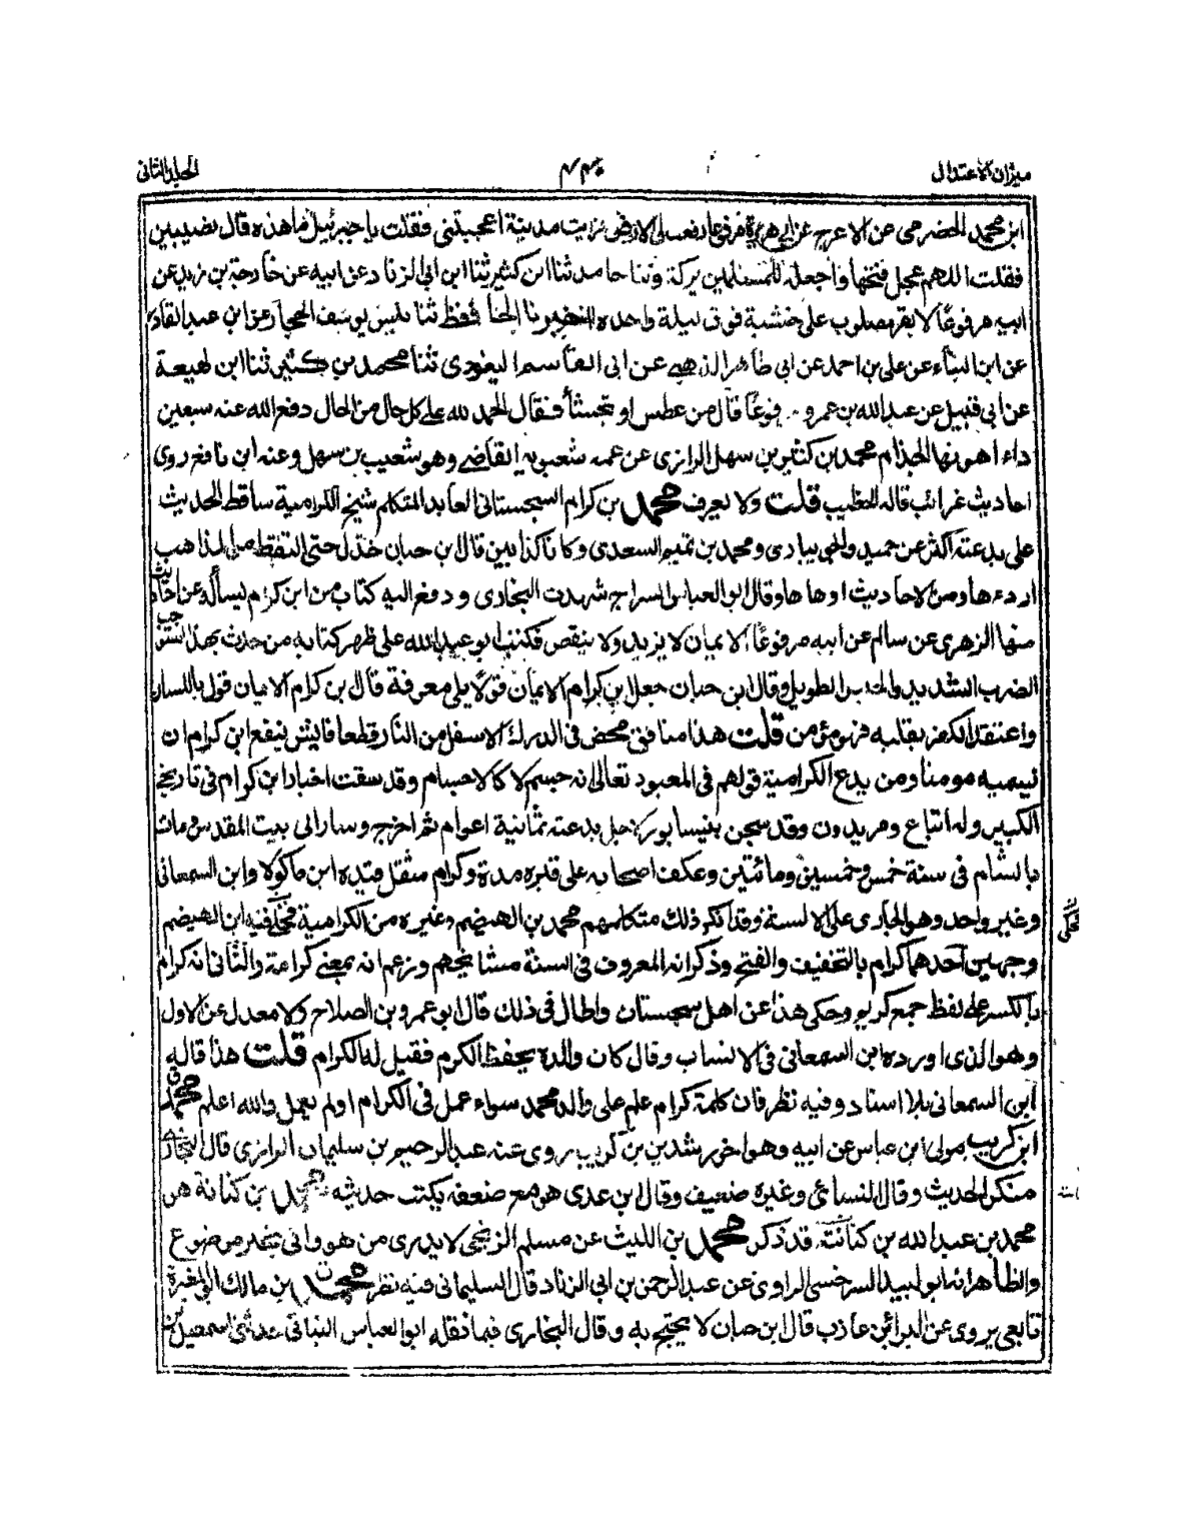 ميزان الاعتدال
٤٤٣
الجلد الثانى
ابن محمد الحضرمى عن الاعرج عن ابى هريرة مرفوعا رفعت لى الارض فرايت مدينة اعجبتنى فقلت يا جبرئيل ما هذه قال نصيبين
فقلت اللهم عجل فتحها واجعله للمسلمين بركة وثنا حامد ثنا ابن كثير ثنا ابن ابى الزناد عن ابيه عن خارجة بن زيد عن
ابيه مرفوعا لا يقر مصلوب على خشبة فوق ليلة واحدة اخبرنا الحافظ ثنا يوسف الحجار عن ابن عبد القادر
عن ابن البناء عن على بن احمد عن ابى طاهر الذهبى عن ابى القاسم البغوى ثنا محمد بن كثير ثنا ابن لهيعة
عن ابى قبيل عن عبد الله بن عمرو مرفوعا قال من عطس او تجشأ فقال الحمد لله على كل حال من الحال دفع الله عنه سبعين
داء اهونها الجذام محمد بن كثير بن سهل الرازى عن عمه شعبويه القاضى وهو شعيب بن سهل وعنه ابن نافع روى
احاديث غرائب قاله الخطيب قلت ولا يعرف محمد بن كرام السجستانى العابد المتكلم شيخ الكرامية ساقط الحديث
على بدعته اكثر عن جميد والجويبارى ومحمد بن تميم السعدى وكانا كذابين قال ابن حبان خذل حتى التقط من المذاهب
ارداها ومن الاحاديث اوهاها وقال ابو العباس السراج شهدت البخارى ودفع اليه كتاب من ابن كرام يسأله عن احاديث
منها الزهرى عن سالم عن ابيه مرفوعا الايمان لا يزيد ولا ينقص فكتب ابو عبد الله على ظهر كتابه من حدث بهذا استوجب
الضرب الشديد والحبس الطويل وقال ابن حبان جعل ابن كرام الايمان قولا بلا معرفة قال بن كرام الايمان قول باللسان
واعتقد الكفر بقلبه فهو مؤمن قلت هذا منافق محض فى الدرك الاسفل من النار قطعا فايش ينفع ابن كرام ان
نسميه مومنا ومن بدع الكرامية قولهم فى المعبود تعالى انه جسم لا كالاجسام وقد سقت اخبار ابن كرام فى تاريخى
الكبير وله اتباع ومريدون وقد سجن بنيسابور لاجل بدعته ثمانية اعوام ثم اخرج وسار الى بيت المقدس ومات
بالشام فى سنة خمس وخمسين ومائتين وعكف اصحابه على قبره مدة وكرام مثقل قيده ابن ماكولا وابن السمعانى
وغير واحد وهو الجارى على الالسنة وقد انكر ذلك متكلمهم محمد بن الهيضم وغيره من الكرامية فحكى فيه ابن الهيضم
وجهين احدهما كرام بالتخفيف والفتح وذكر انه المعروف فى السنة مشائخهم وزعم انه بمعنى كرامة والثانى انه كرام
بالكسر على لفظ جمع كريم وحكى هذا عن اهل سجستان واطال فى ذلك قال ابو عمرو بن الصلاح ولا معدل عن الاول
وهو الذى اورده ابن السمعانى فى الانساب وقال كان والده يحفظ الكرم فقيل له الكرام قلت هذا قاله
ابن السمعانى بلا اسناد وفيه نظر فان كلمة كرام علم على والد محمد سواء عمل فى الكرام او لم يعمل والله اعلم محمد
ابن كريب مولى ابن عباس عن ابيه وهو اخو رشدين بن كريب روى عنه عبد الرحيم بن سليمان الرازى قال البخارى
منكر الحديث وقال النسائى وغيره ضعيف وقال ابن عدى هو مع ضعفه يكتب حديثه محمد بن كناسة هو
محمد بن عبد الله بن كناسة قد ذكر محمد بن الليث عن مسلم الزنجى لا يدرى من هو واتى بخبر موضوع
والظاهر انه ابو لبيد السرخسى الراوى عن عبد الرحمن بن ابى الزناد قال السليمانى فيه نظر محمد بن مالك ابو المغيرة
تابعى يروى عن البراء بن عازب قال ابن حبان لا يحتج به وقال البخارى فيما نقله ابو العباس النباتى حدثنى اسمعيل بن